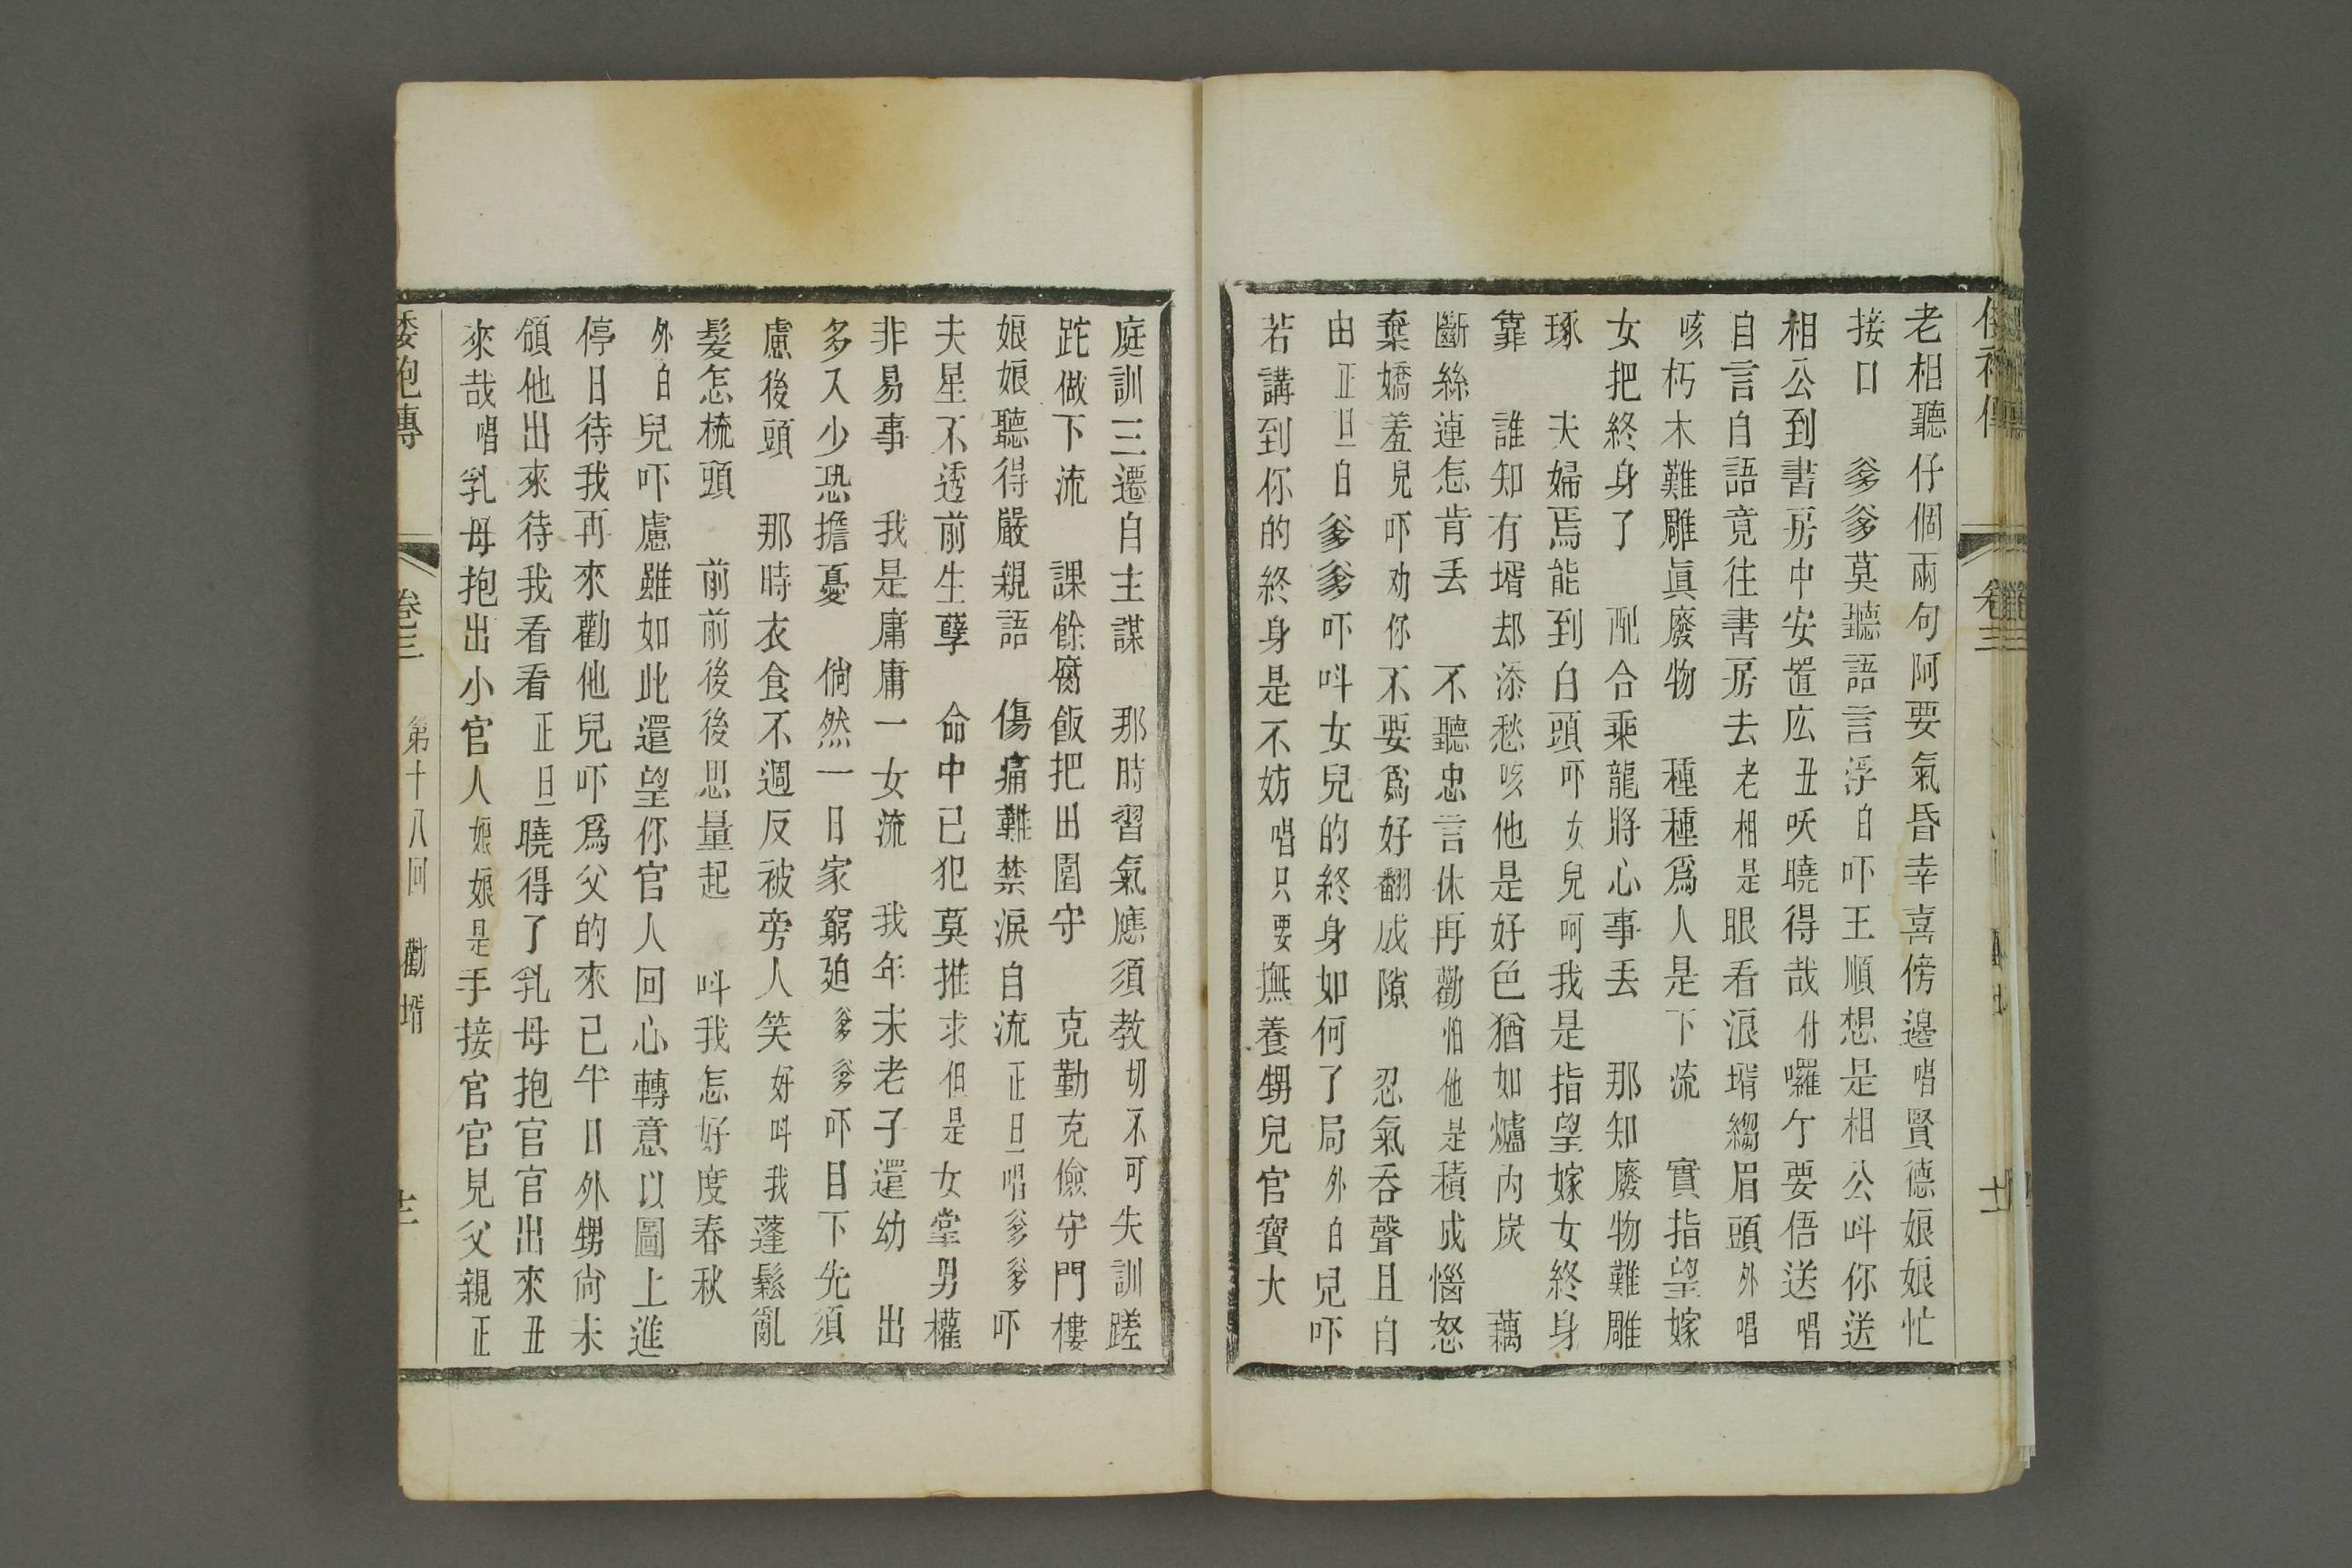 老相聽仔個兩句阿要氣昏幸喜傍邊唱賢德娘娘忙
接口　爹爹莫聽語言浮白吓王順想是相公呌你送
相公到書房中安置広丑㕭曉得哉付囉亇要俉送唱
自言自語竟往書房去老相是眼看浪壻縐眉頭外唱
咳朽木難雕眞廢物　種種爲人是下流　實指望嫁
女把終身了　配合乘龍將心事丟　那知廢物難雕
琢　夫婦焉能到白頭吓女兒呵我是指望嫁女終身
靠　誰知有壻却添愁咳他是好色猶如爐內炭　藕
斷絲連怎肯丟　不聽忠言休再勸怕他是積成惱怒
棄嬌羞兒吓劝你不要爲好翻成隙　忍氣吞聲且自
由正旦白爹爹吓呌女兒的終身如何了局外白兒吓
若講到你的終身是不妨唱只要撫養甥兒官寶大
卷三
庭訓三遷自主謀　那時習氣應須教切不可失訓蹉
跎做下流　課餘腐飯把田圍守　克勤克儉守門樓
娘娘聽得嚴親語　傷痛難禁淚自流正旦唱爹爹吓
夫星不透前生孽　命中已犯莫推求但是女掌男權
非易事　我是庸庸一女流　我年未老子還幼　出
多入少恐擔憂　倘然一日家窮廹爹爹吓目下先須
慮後頭　那時衣食不週反被旁人笑好呌我蓬鬆亂
髮怎梳頭　前前後後思量起　呌我怎好度春秋
外白兒吓慮雖如此還望你官人回心轉意以圖上進
停日待我再來勸他兒吓爲父的來已半日外甥尙未
領他出來待我看看正旦曉得了乳母抱官官出來丑
來哉唱乳母抱出小官人娘娘是手接官官見父親正
倭袍傳　卷三　第十八回　勸壻